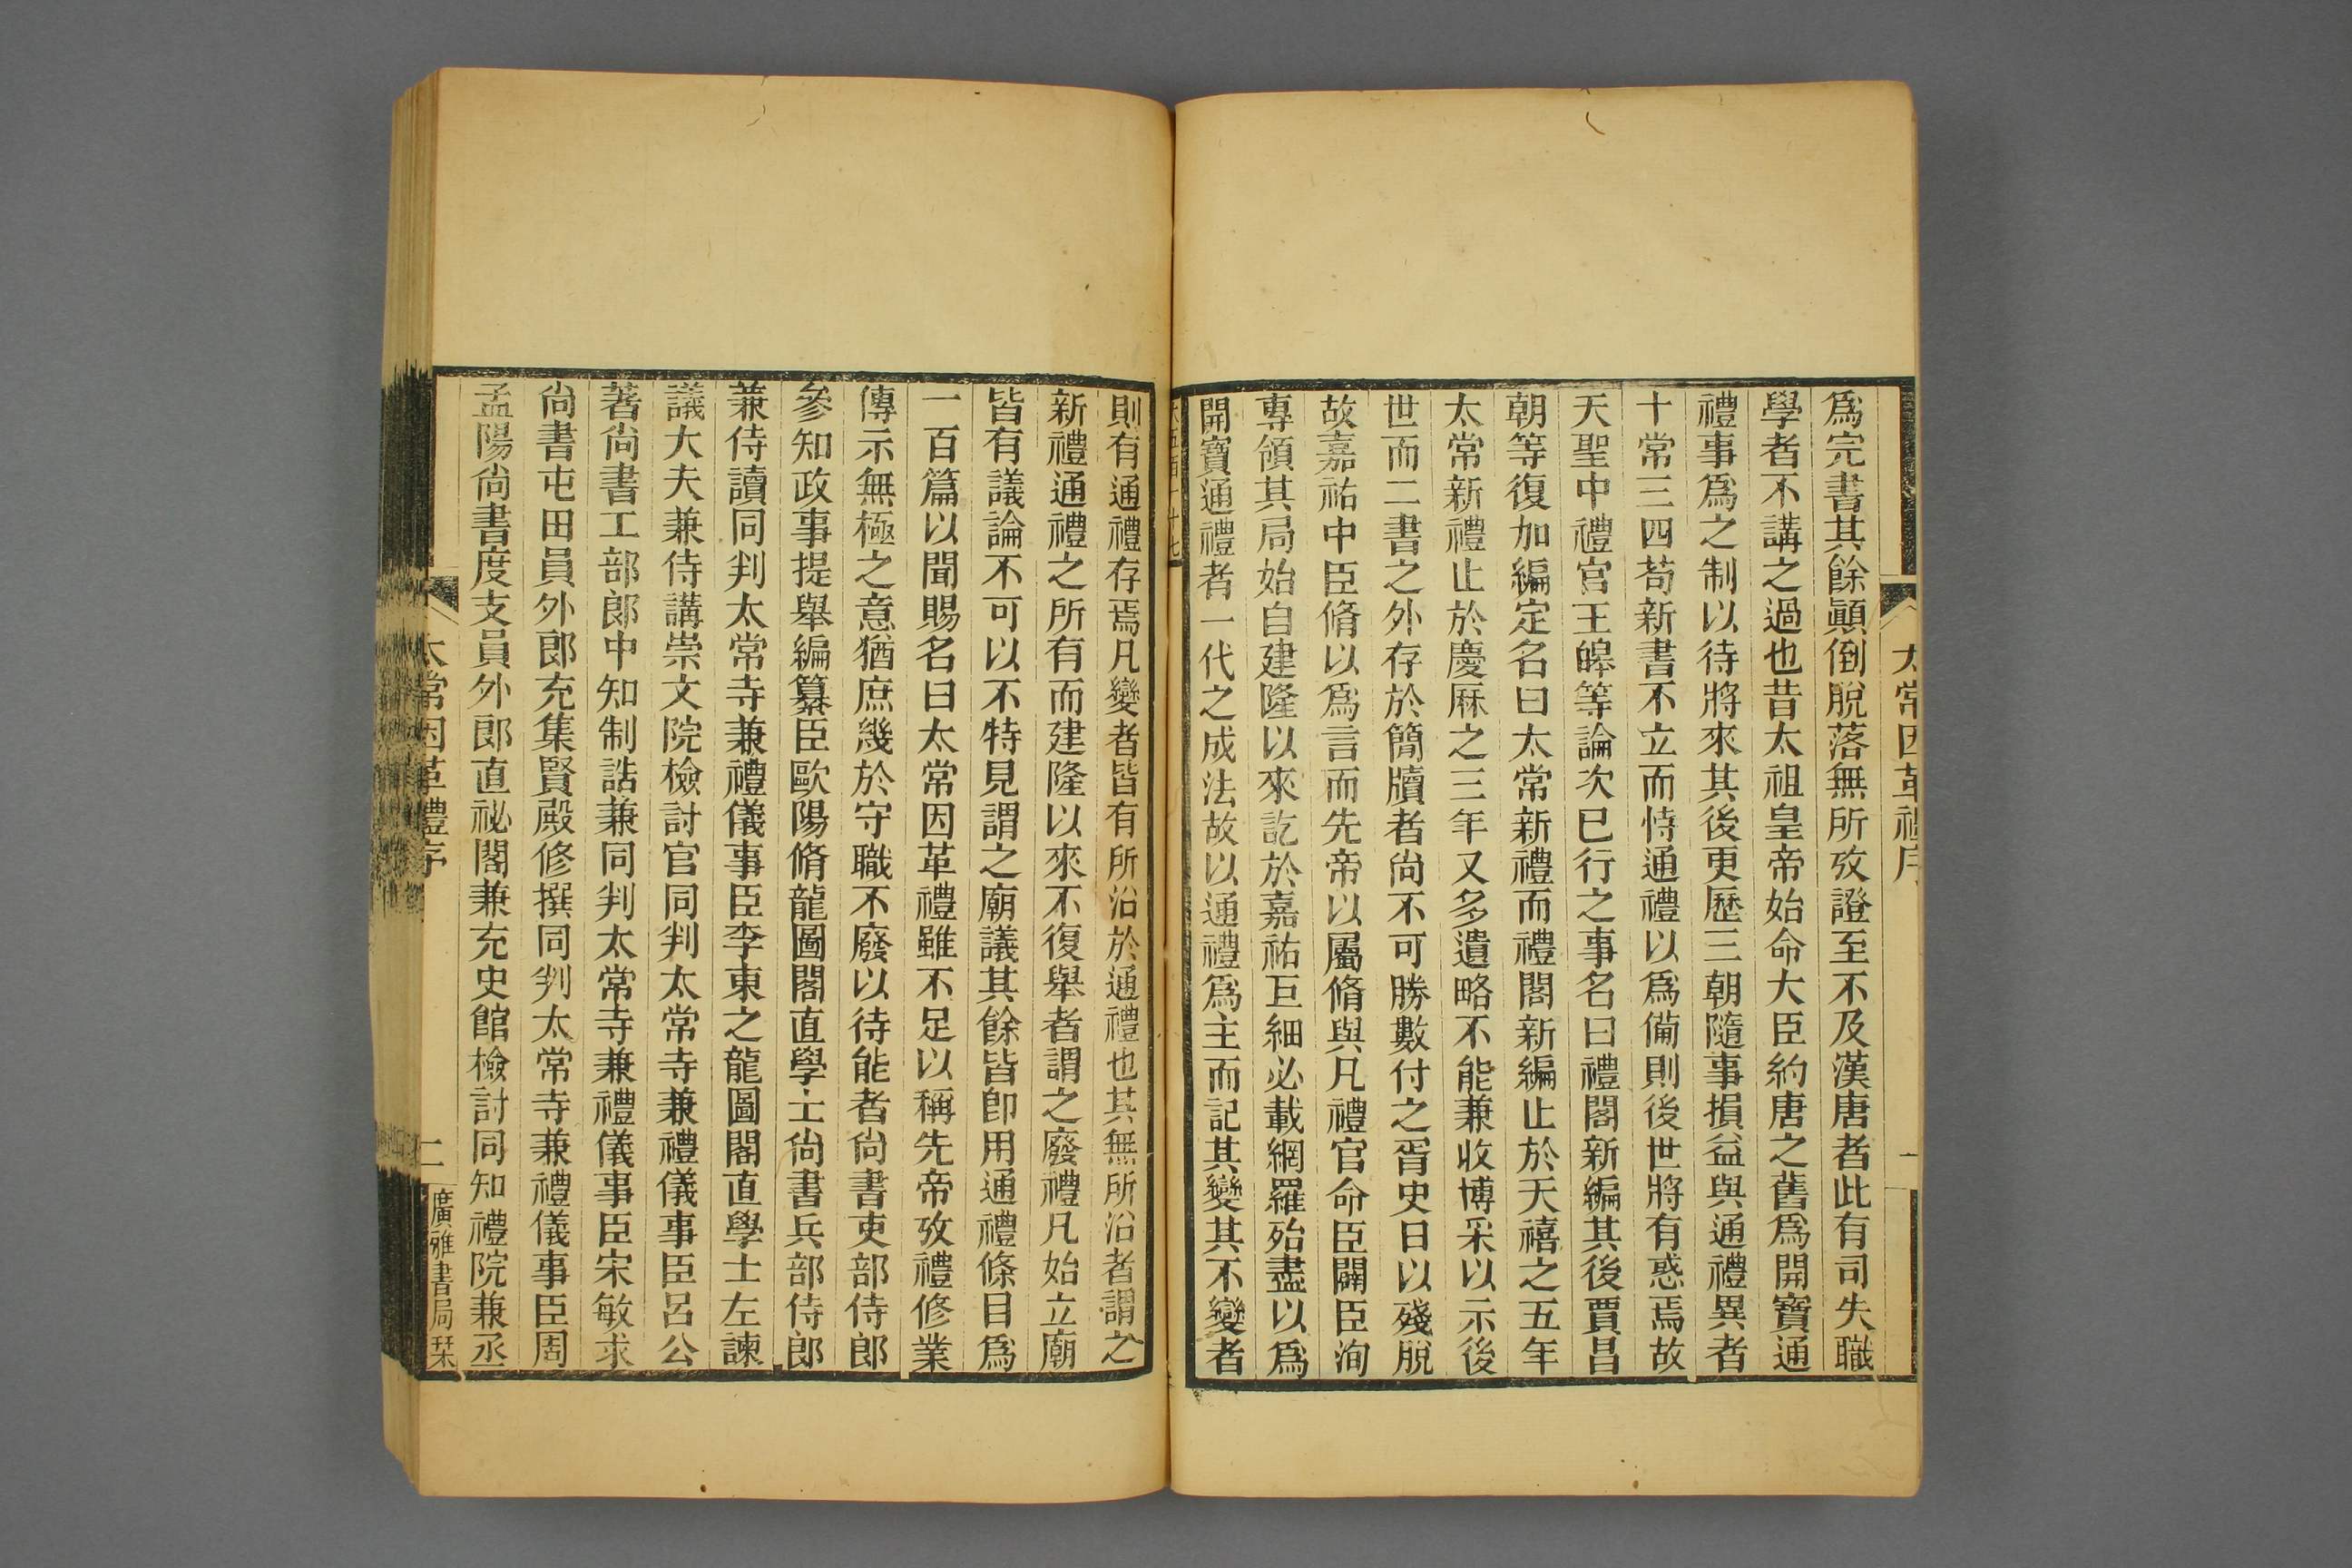 太常因革禮序
一
爲完書其餘顚倒脫落無所攷證至不及漢唐者此有司失職
學者不講之過也昔太祖皇帝始命大臣約唐之舊爲開寶通
禮事爲之制以待將來其後更歷三朝隨事損益與通禮異者
十常三四苟新書不立而恃通禮以爲備則後世將有惑焉故
天聖中禮官王皞等論次已行之事名曰禮閣新編其後賈昌
朝等復加編定名曰太常新禮而禮閣新編止於天禧之五年
太常新禮止於慶厤之三年又多遺略不能兼收博采以示後
世而二書之外存於簡牘者尙不可勝數付之胥史日以殘脫
故嘉祐中臣脩以爲言而先帝以屬脩與凡禮官命臣闢臣洵
專領其局始自建隆以來訖於嘉祐巨細必載網羅殆盡以爲
開寶通禮者一代之成法故以通禮爲主而記其變其不變者
則有通禮存焉凡變者皆有所沿於通禮也其無所沿者謂之
新禮通禮之所有而建隆以來不復舉者謂之廢禮凡始立廟
皆有議論不可以不特見謂之廟議其餘皆卽用通禮條目爲
一百篇以聞賜名曰太常因革禮雖不足以稱先帝攷禮修業
傳示無極之意猶庶幾於守職不廢以待能者尙書吏部侍郎
參知政事提舉編纂臣歐陽脩龍圖閣直學士尙書兵部侍郎
兼侍讀同判太常寺兼禮儀事臣李東之龍圖閣直學士左諫
議大夫兼侍講崇文院檢討官同判太常寺兼禮儀事臣呂公
著尙書工部郎中知制誥兼同判太常寺兼禮儀事臣宋敏求
尙書屯田員外郎充集賢殿修撰同判太常寺兼禮儀事臣周
孟陽尙書度支員外郎直祕閣兼充史館檢討同知禮院兼丞
太常因革禮序
二
廣雅書局栞